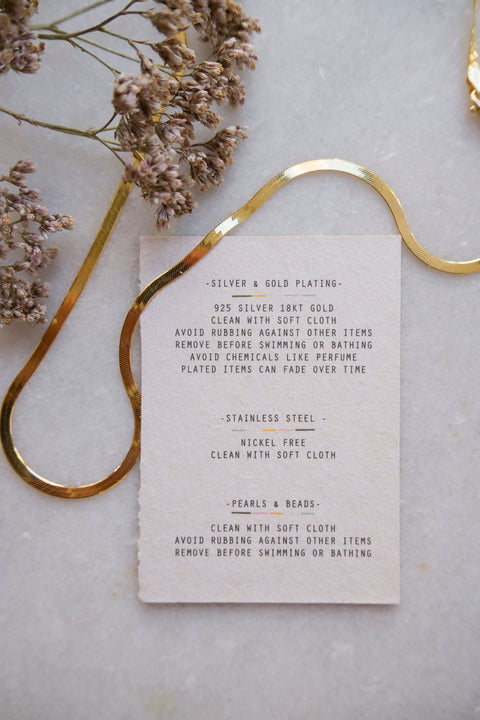 -SILVER & GOLD PLATING-
925 SILVER 18KT GOLD
CLEAN WITH SOFT CLOTH
AVOID RUBBING AGAINST OTHER ITEMS
REMOVE BEFORE SWIMMING OR BATHING
AVOID CHEMICALS LIKE PERFUME
PLATED ITEMS CAN FADE OVER TIME
-STAINLESS STEEL -
NICKEL FREE
CLEAN WITH SOFT CLOTH
-PEARLS & BEADS-
CLEAN WITH SOFT CLOTH
AVOID RUBBING AGAINST OTHER ITEMS
REMOVE BEFORE SWIMMING OR BATHING